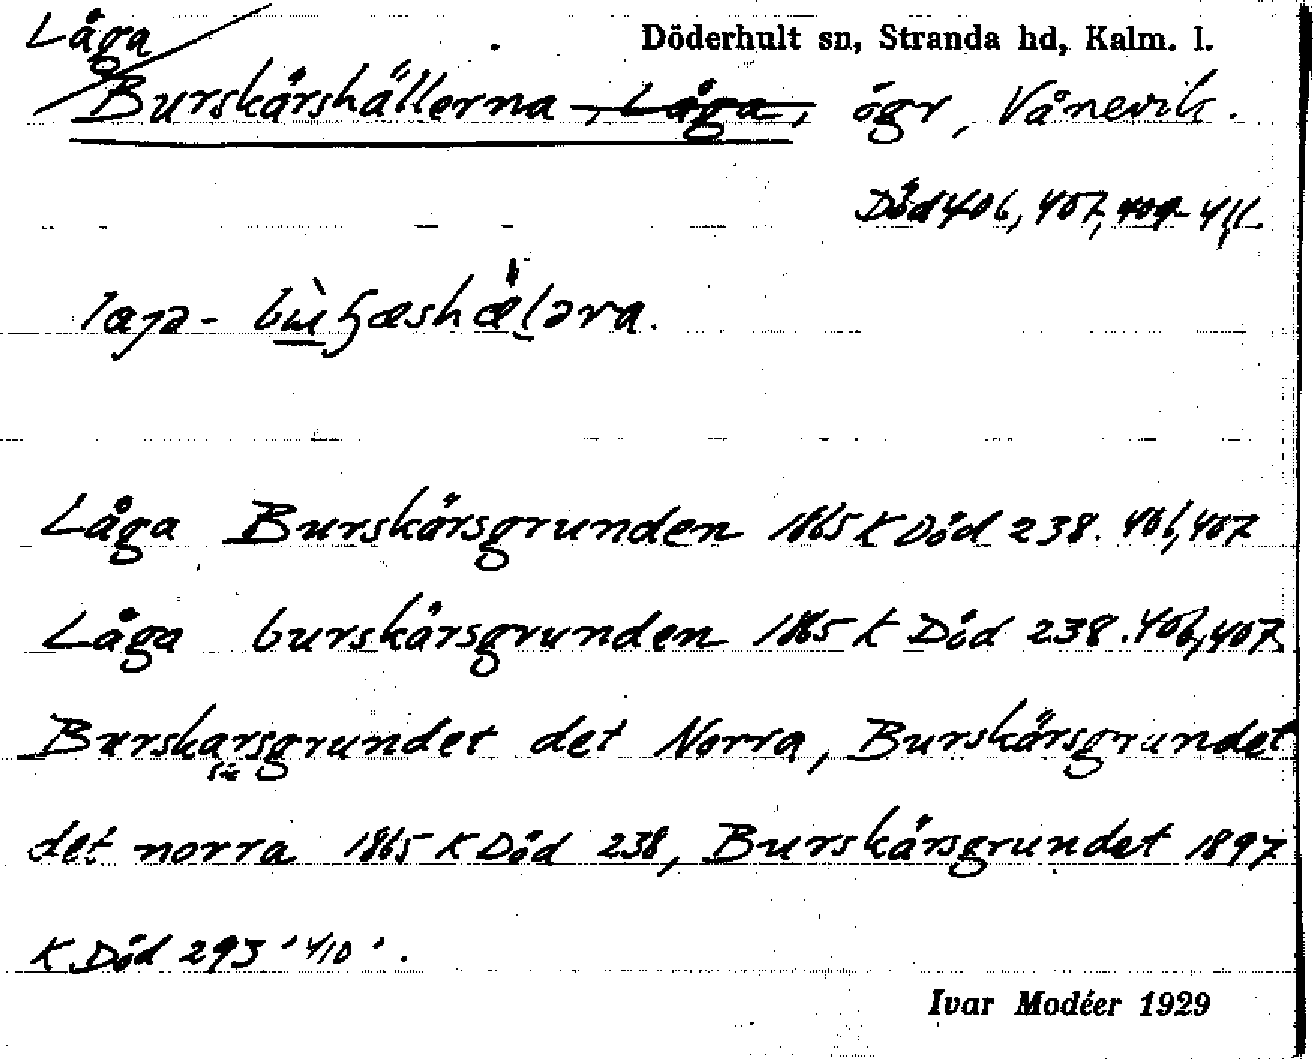 Låga
Döderhult sn, Stranda hd, Kalm. l.
Burskärshällerna, Låga, ögr, Vånevik.
Död 406, 407, 409-411.
Låga Burskärsgrunden 1865 K Död 238. 406, 407
Låga burskärsgrunden 1865 K Död 238. 406, 407
Burskarsgrundet det Norra, Burskärsgrundet
sic
det norra 1865 K Död 238, Burskärsgrundet 1897
K Död 293 '410'.
Ivar Modéer 1929